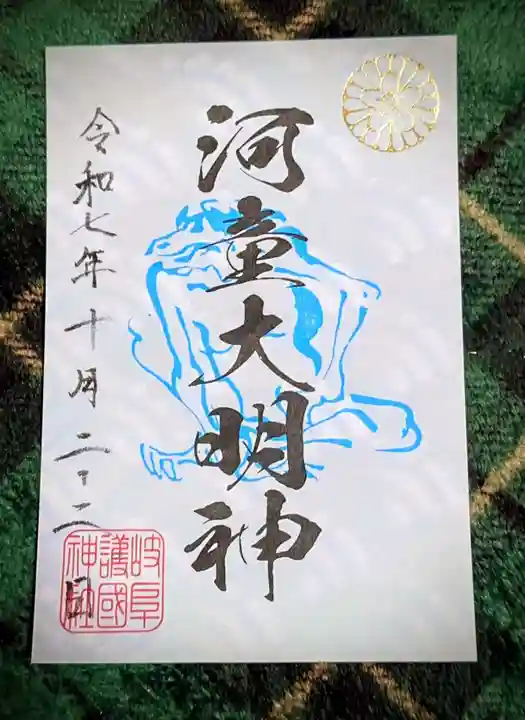 河童大明神
令和七年十月二十二日
岐阜
護國
神社